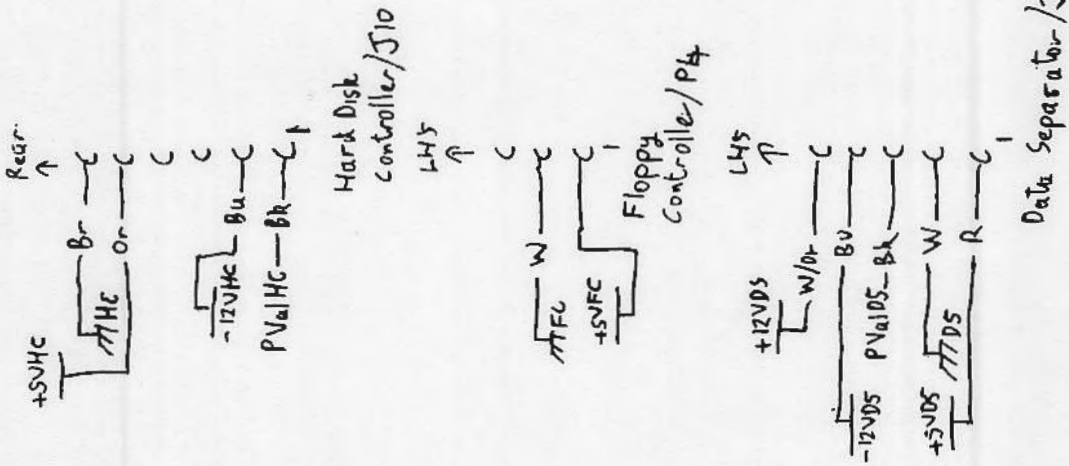 Rear
+5VHC
Br
C
HC
Or
C
C
C
-12VHC
Bu
C
PValHC
Bk
C
1
Hard Disk
Controller/J10
LHS
C
W
C
FC
+5VFC
C
1
Floppy
Controller/P4
LHS
+12VDS
W/Or
C
-12VDS
Bu
C
PValDS
Bk
C
DS
W
C
+5VDS
R
C
1
Data Separator/